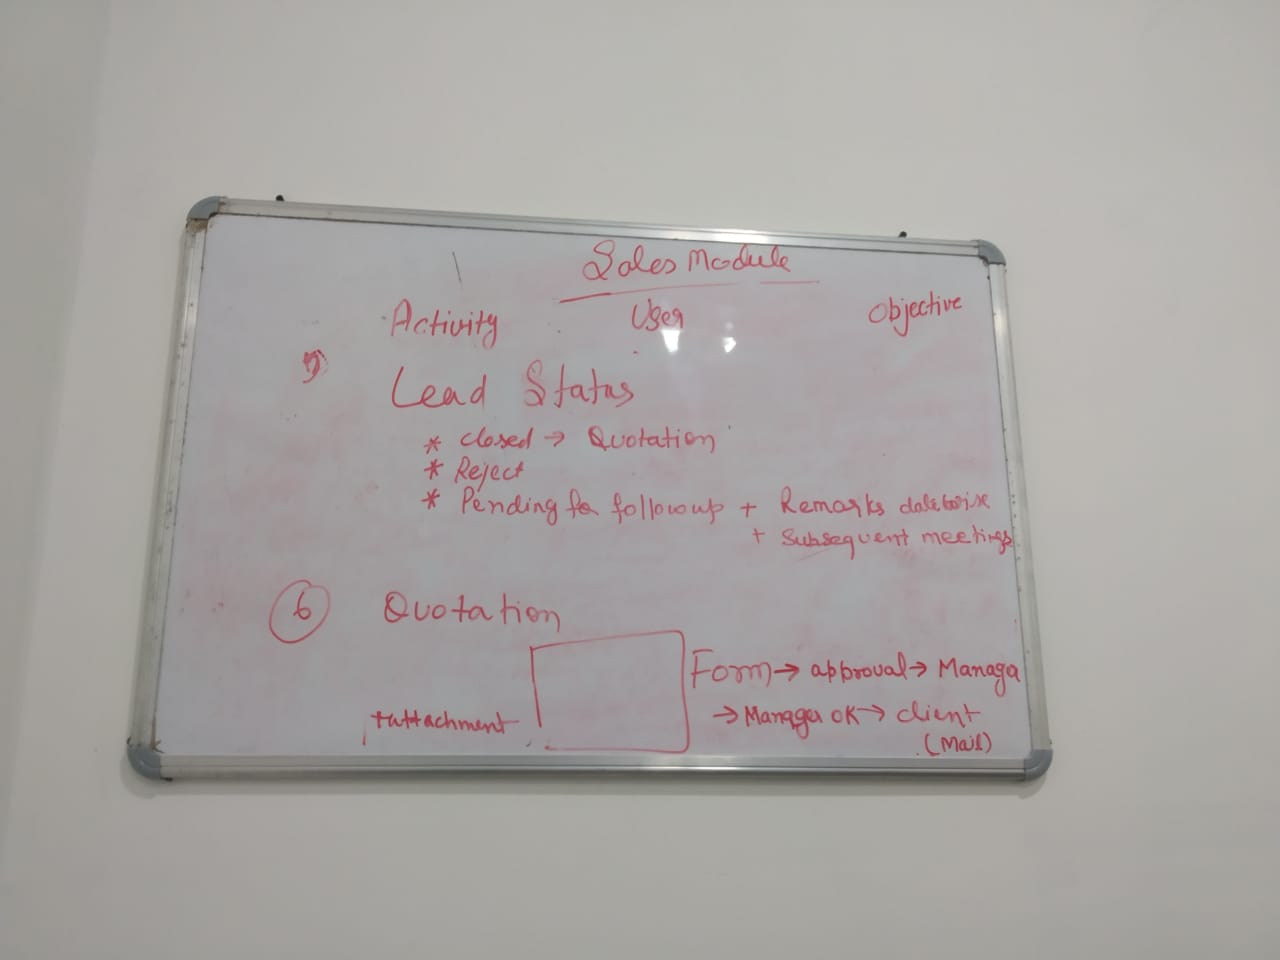 Sales Module
Activity User Objective
Lead Status
* closed → Quotation
* Reject
* Pending for followup + Remarks datewise
+ Subsequent meetings
6 Quotation
Form → approval → Manager
+attachment → Manager OK → client
(Mail)